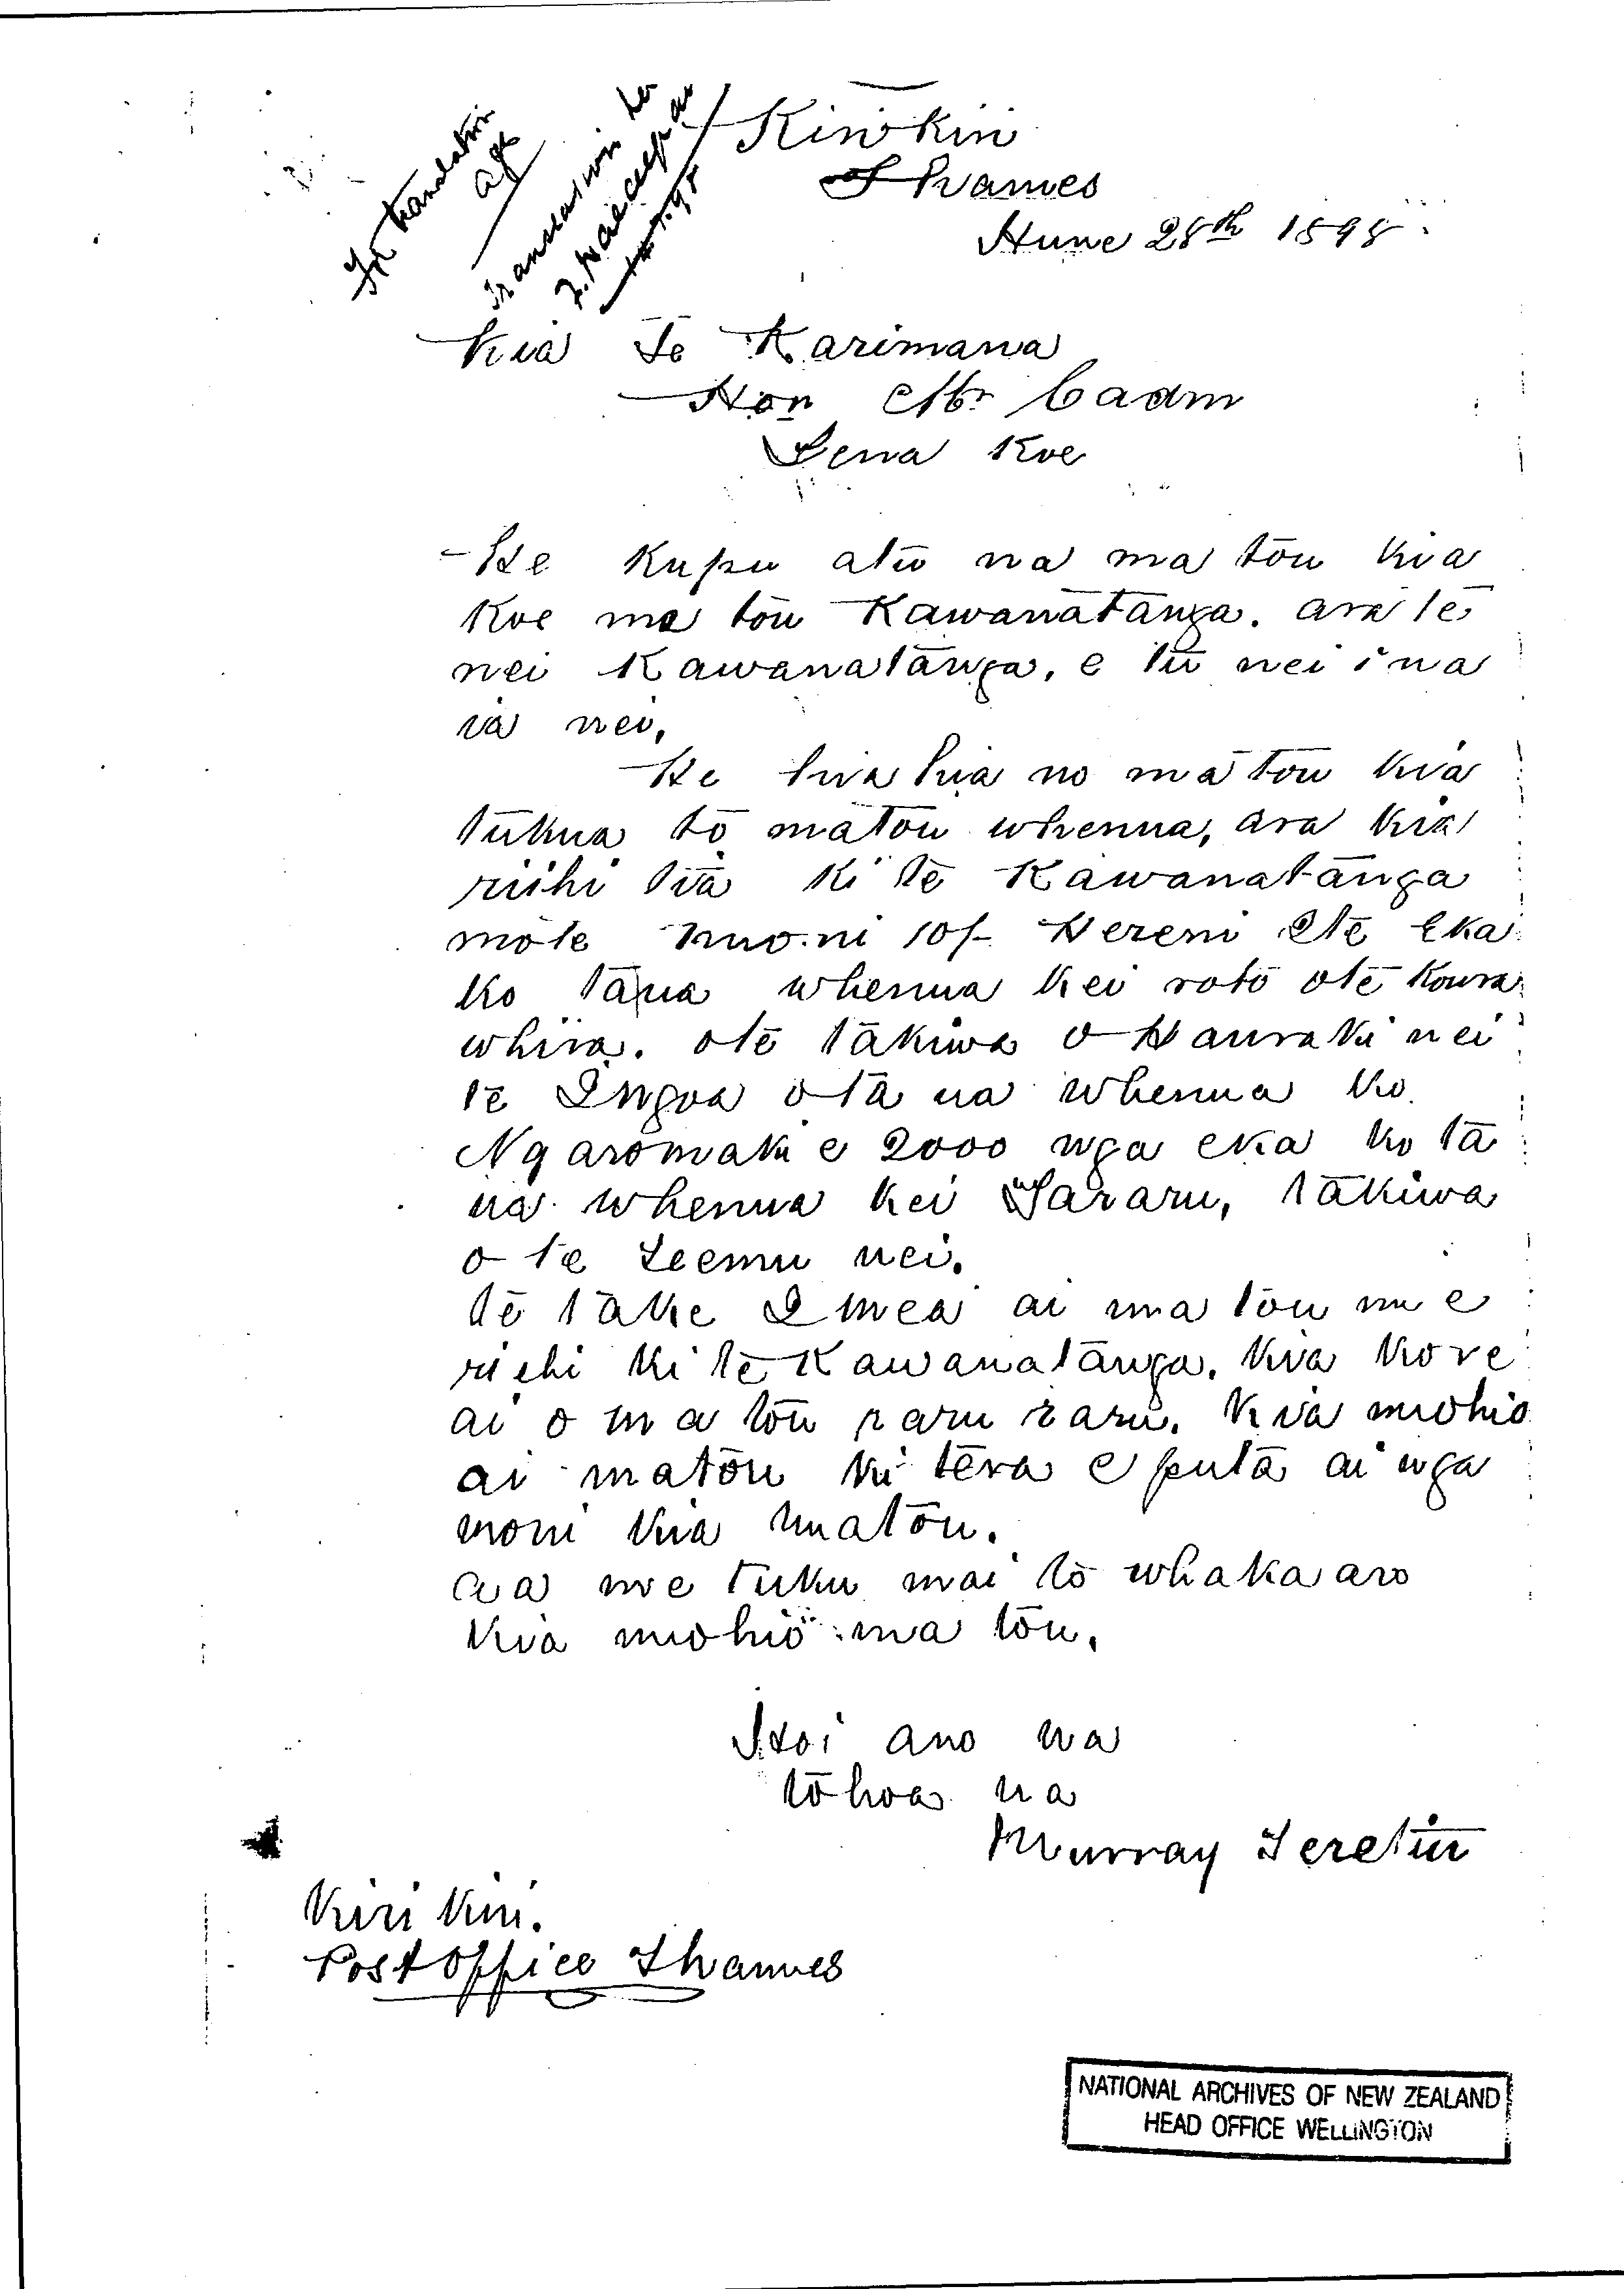 For translation
Translation her
Kirikiri
Thames
June 28th 1895
Kia Te Karimana
Hon Mr Cadm
Tena Koe
He Kupu atu na ma tou kia
Koe ma tou Kawanatanga. ara te
nei Kawanatanga, e tu nei i na
ia nei.
He hia hia no ma tou kia
tukua to matou whenua, ara kia
riihi tia ki te Kawanatanga
mo te moni 10/- Hereni ete Eka
ko taua whenua kei roto ote Koura
whira. ote takiwa o Hauraki nei
te Ingoa o ta ua whenua ko
Ngaromaki e 2000 nga eka ko ta
ua whenua kei Tararu, takiwa
o te Teemu nei.
te take I mea ai ma tou me
riihi ki te Kawanatanga. kia kore
ai o ma tou raru raru. kia mohio
ai matou ki tera e puta ai nga
moni kia matou.
aa me tuku mai to whakaaro
kia mohio ma tou.
Hoi ano na
to hoa na
Murray Teretiu
Kirikiri.
Post Office Thames
NATIONAL ARCHIVES OF NEW ZEALAND
HEAD OFFICE WELLINGTON